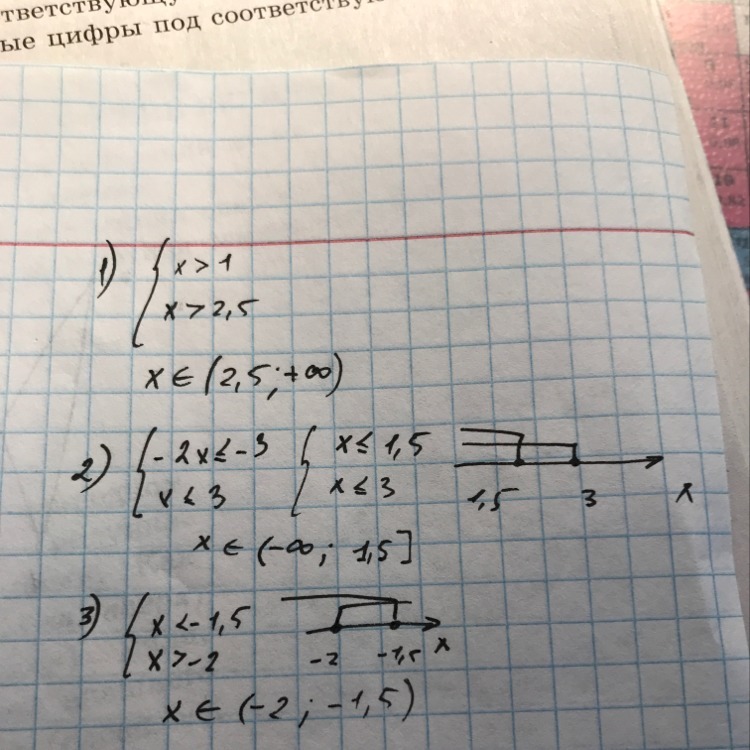 ответствующ
ые цифры под соответству
1) { x > 1
x > 2,5
x ∈ (2,5; +∞)
2) { - 2x ≤ -3 { x ≤ 1,5
x ≤ 3 x ≤ 3
1,5 3 x
x ∈ (-∞; 1,5]
3) { x < -1,5
x > -2
-2 -1,5 x
x ∈ (-2; -1,5)